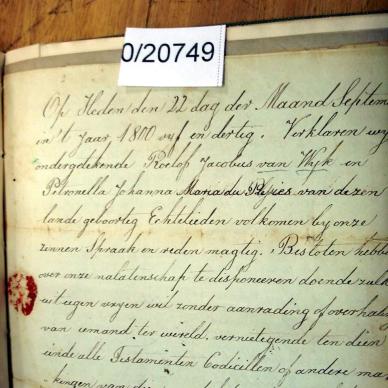 0/20749
Op Heden den 22 dag der Maand Septem
in't Jaar 1800 vyf en dertig. Verklaren wy
ondergetekende Roelof Jacobus van Wyk en
Petronella Johanna Maria du Plesies van dezen
lande geboortig Echtelieden volkomen by onze
zinnen Spraak en reden magtig. Besloten hebbe
over onze nalatenschap te disponeeren doende zulk
uit eigen vryen wil zonder aanrading of overhali
van iemand ter wereld, vernietigende ten dien
einde alle Testamenten Codicillen of andere ma
kingen van